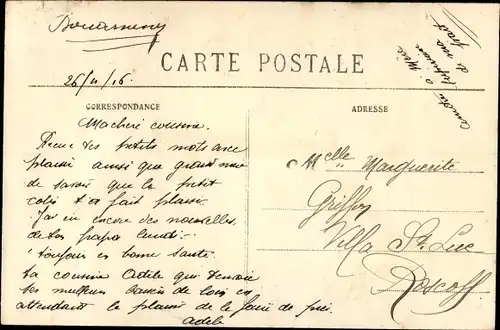 Douarnenez
CARTE POSTALE
26/11/16.
CORRESPONDANCE
ADRESSE
Ma chéri cousine.
Recue tes petits mots avec
plaisir ainsi que grand mère
de savoir que le petit
colis t'a fait plaisir.
J'ai eu encore des nouvelles
de ton papa lundi
toujours en bonne santé
ta cousine Adèle qui t'envoie
ses meilleurs baisers de loin en
attendant le plaisir de le faire de près.
Adèle
Melle Marguerite
Griffon
Villa St Luc
Roscoff